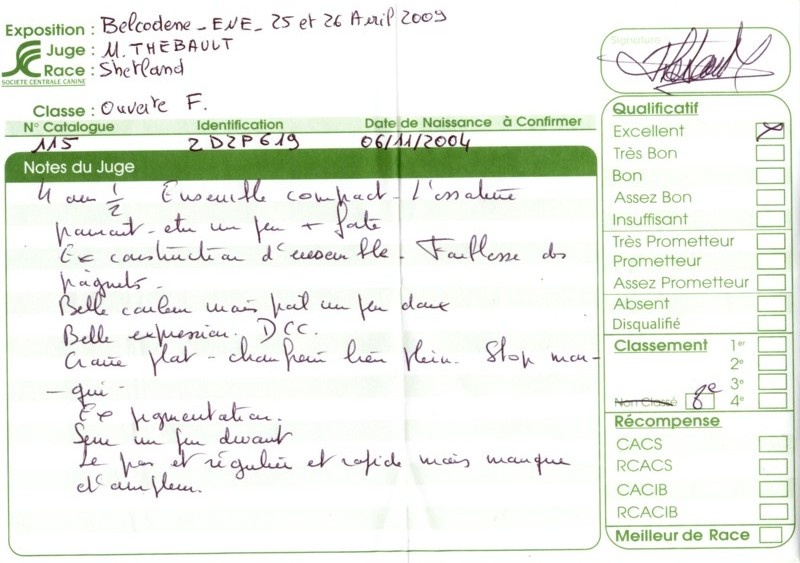 Exposition : Belcodene - ENE - 25 et 26 Avril 2009
Juge : M. THEBAULT
Race : Shetland
SOCIETE CENTRALE CANINE
Classe : Ouverte F.
N° Catalogue Identification Date de Naissance à Confirmer
115 2DZP619 06/11/2004
Notes du Juge
4 ans ½ Ensemble compact - L'ossature
pourrait être un peu + forte
Ex construction d'ensemble - Faiblesse des
Belle couleur mais poil un peu doux
Belle expression. DCC.
Crane plat - chanfrein bien plein. Stop mar-
- qué -
Ex pigmentation.
Serre un peu devant
Le pas est régulier et rapide mais manque
d'ampleur.
Signature
Qualificatif
Excellent X
Très Bon
Bon
Assez Bon
Insuffisant
Très Prometteur
Prometteur
Assez Prometteur
Absent
Disqualifié
Classement 1er
2e
3e
Non Classé 8e 4e
Récompense
CACS
RCACS
CACIB
RCACIB
Meilleur de Race